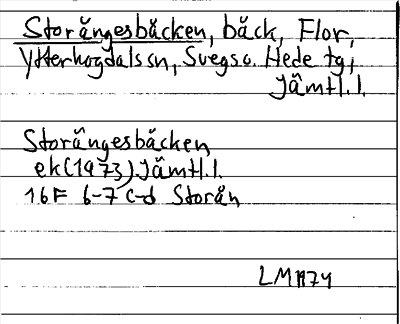 Storängesbäcken, bäck, Flor,
Ytterhogdals sn, Svegs o. Hede tg,
Jämtl. l.
Storängesbäcken
ek (1973) Jämtl. l.
16F 6-7 c-d Storån
LM 1974